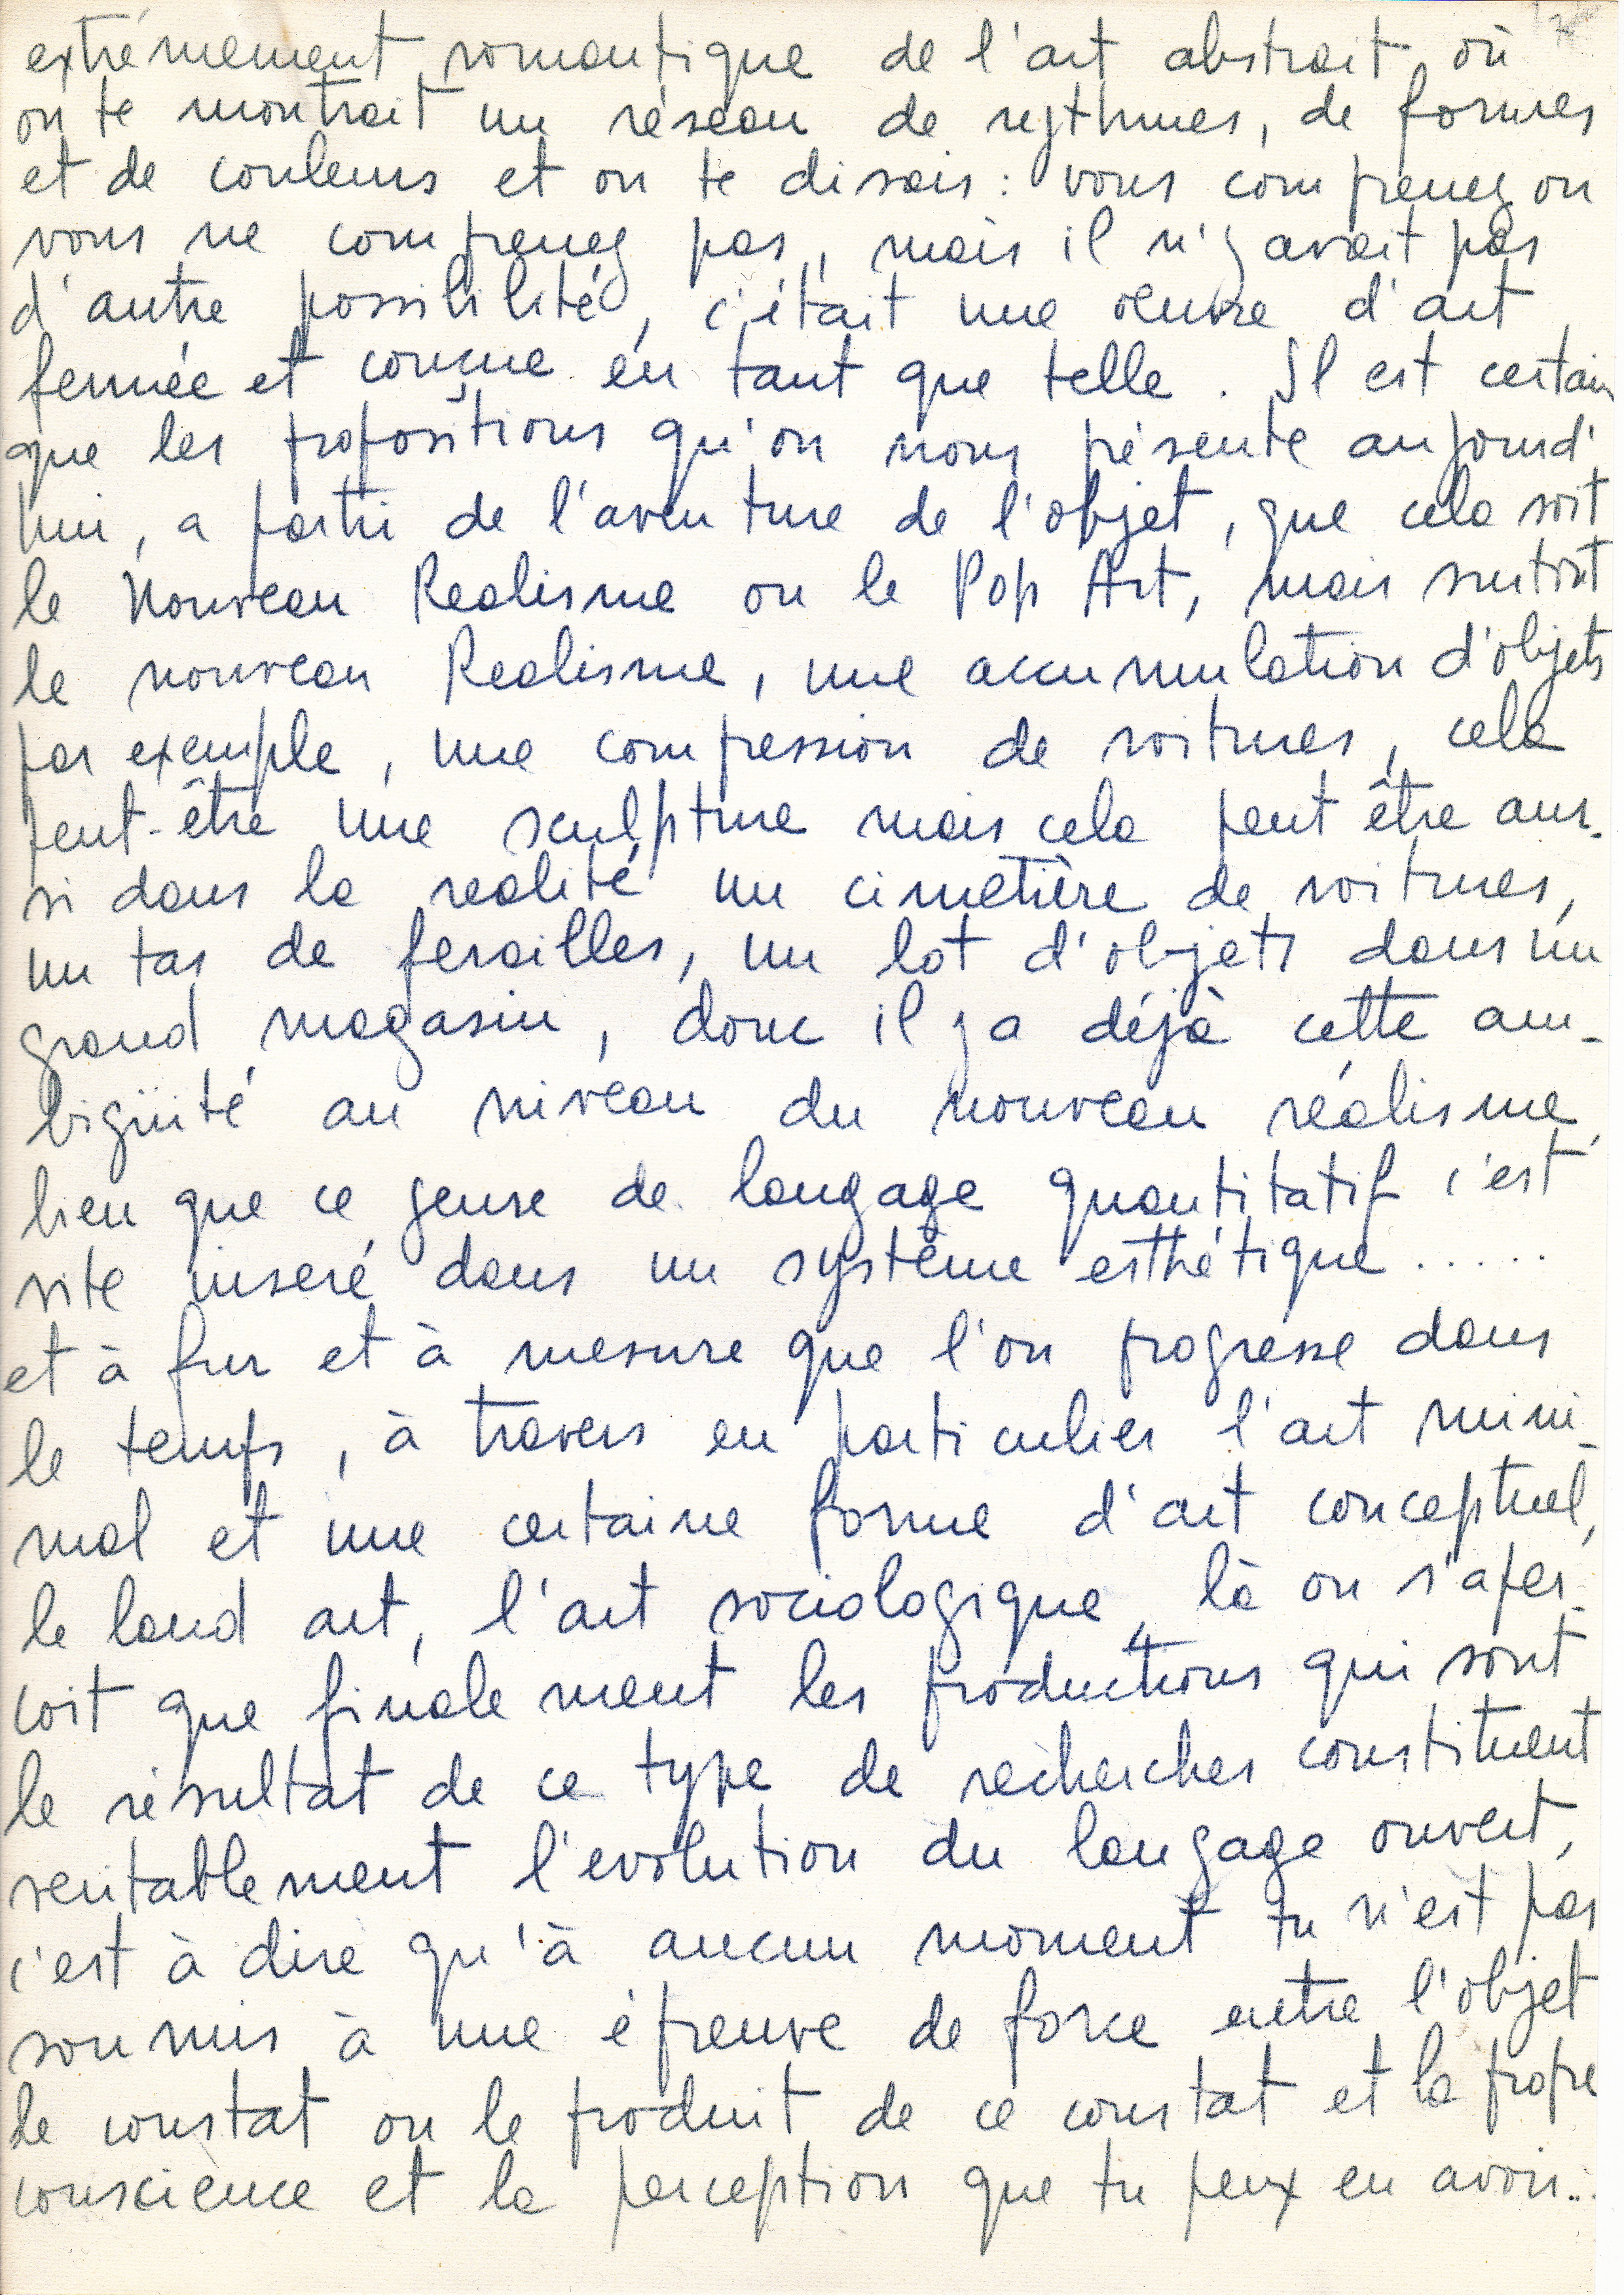 extrémement romantique de l'art abstrait où
on te montrait un réseau de rythmes, de formes
et de couleurs et on te disais : vous comprenez ou
vous ne comprenez pas, mais il n'y avait pas
d'autre possibilité, c'était une oeuvre d'art
fermée et conçue en tant que telle. Il est certain
que les propositions qu'on nous présente aujourd'
hui, a partir de l'aventure de l'objet, que cela soit
le Nouveau Realisme ou le Pop Art, mais surtout
le nouveau Realisme, une accumulation d'objets
par exemple, une compression de voitures, cela
peut-être une sculpture mais cela peut être aus-
si dans la realité un cimetière de voitures,
un tas de ferailles, un lot d'objets dans un
grand magasin, donc il y a déjà cette am-
bigüité au niveau du nouveau réalisme,
bien que ce genre de langage quantitatif c'est
vite inseré dans un système esthétique.....
et à fur et à mesure que l'on progresse dans
le temps, à travers en particulier l'art mini-
mal et une certaine forme d'art conceptuel,
le land art, l'art sociologique, là on s'aper-
coit que finalement les productions qui sont
le résultat de ce type de recherches constituent
veritablement l'evolution du langage ouvert,
c'est à dire qu'à aucun moment tu n'est pas
soumis à une épreuve de force entre l'objet
le constat ou le produit de ce constat et la propre
conscience et la perception que tu peux en avoir...